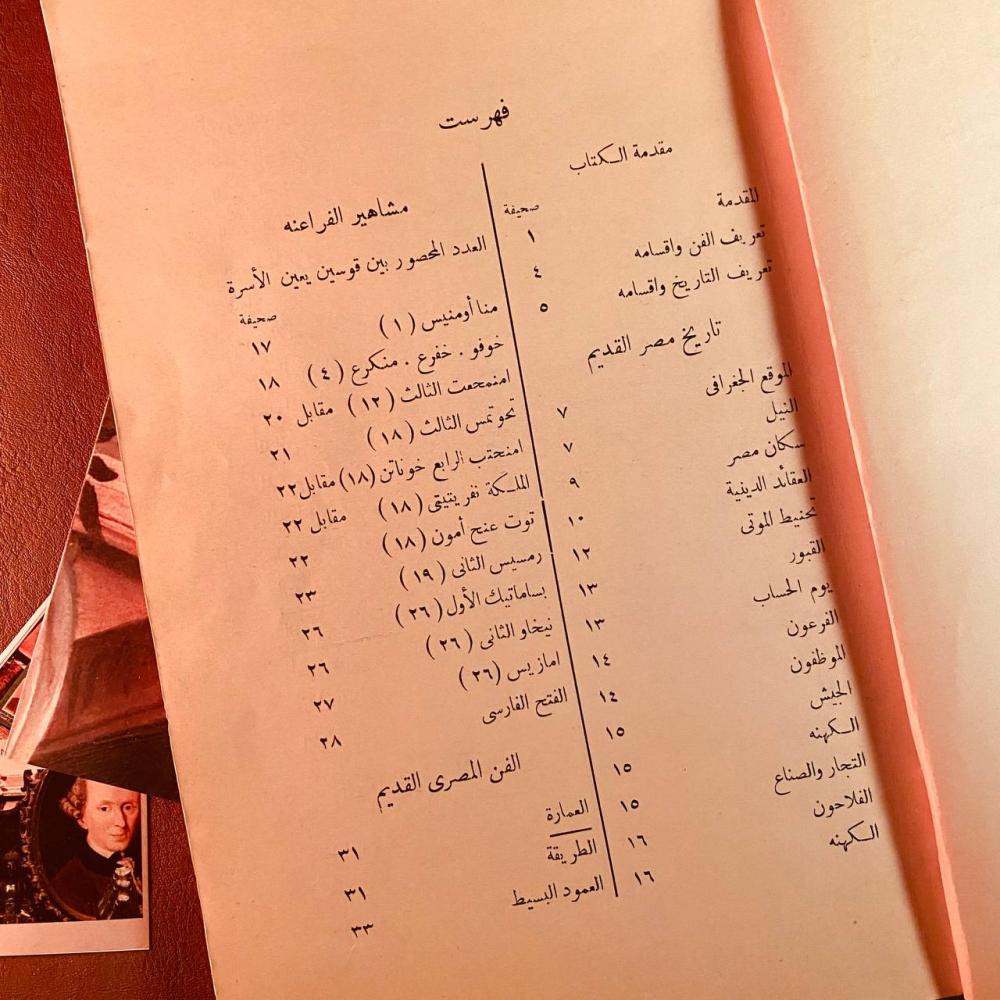 فهرست
مقدمة الكتاب
صحيفة
المقدمة ١
تعريف الفن واقسامه ٤
تعريف التاريخ واقسامه ٥
تاريخ مصر القديم
الموقع الجغرافى ٧
النيل ٧
سكان مصر ٩
العقائد الدينية ١٠
تحنيط الموتى ١٢
القبور ١٣
يوم الحساب ١٣
الفرعون ١٤
الموظفون ١٤
الجيش ١٥
الكهنه ١٥
التجار والصناع ١٥
الفلاحون ١٦
الكهنه ١٦
مشاهير الفراعنه
العدد المحصور بين قوسين يعين الأسرة
صحيفة
منا أومنيس (١) ١٧
خوفو . خفرع . منكرع (٤) ١٨
امنمحعت الثالث (١٢) مقابل ٢٠
تحوتمس الثالث (١٨) ٢١
امنحتب الرابع خوناتن (١٨) مقابل ٢٢
الملكة نفريتيتى (١٨) مقابل ٢٢
توت عنج أمون (١٨) ٢٢
رمسيس الثانى (١٩) ٢٣
بساماتيك الأول (٢٦) ٢٦
نيخاو الثانى (٢٦) ٢٦
امازيس (٢٦) ٢٧
الفتح الفارسى ٢٨
الفن المصرى القديم
العمارة ٣١
الطريقة ٣١
العمود البسيط ٣٣